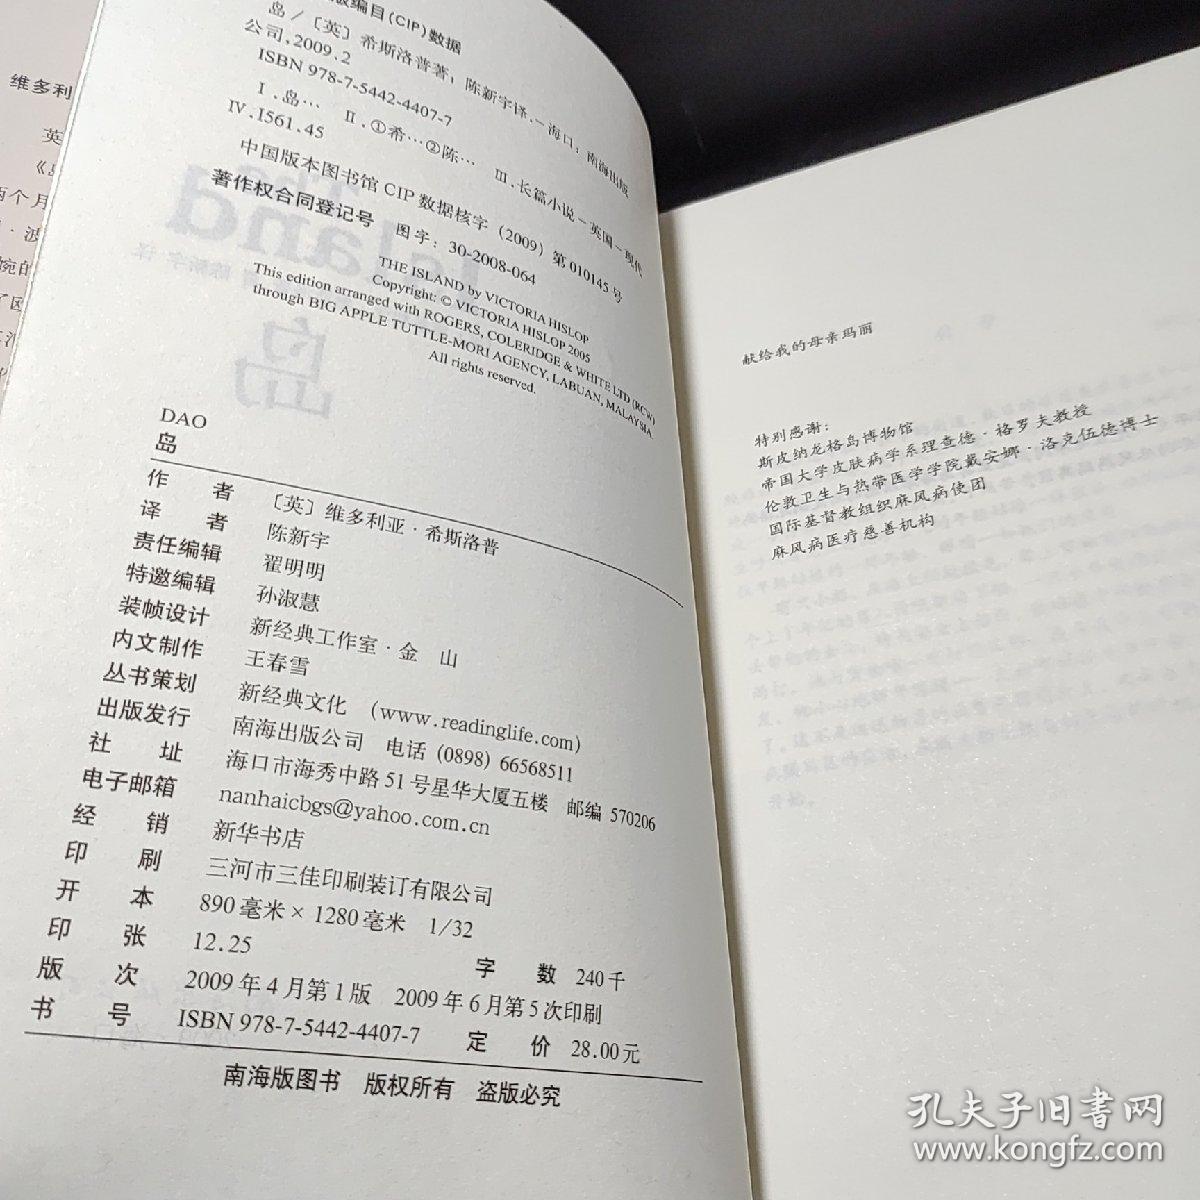 版编目(CIP)数据
岛／〔英〕希斯洛普著；陈新宇译.－海口：南海出版
公司,2009.2
ISBN 978-7-5442-4407-7
Ⅰ.岛… Ⅱ.①希…②陈… Ⅲ.长篇小说－英国－现代
Ⅳ.I561.45
中国版本图书馆CIP数据核字（2009）第010145号
著作权合同登记号 图字：30-2008-064
THE ISLAND by VICTORIA HISLOP
Copyright: © VICTORIA HISLOP 2005
This edition arranged with ROGERS, COLERIDGE & WHITE LTD (RCW)
through BIG APPLE TUTTLE-MORI AGENCY, LABUAN, MALAYSIA
All rights reserved.
DAO
岛
作 者 〔英〕维多利亚·希斯洛普
译 者 陈新宇
责任编辑 翟明明
特邀编辑 孙淑慧
装帧设计 新经典工作室·金 山
内文制作 王春雪
丛书策划 新经典文化 (www.readinglife.com)
出版发行 南海出版公司 电话 (0898) 66568511
社 址 海口市海秀中路51号星华大厦五楼 邮编 570206
电子邮箱 nanhaicbgs@yahoo.com.cn
经 销 新华书店
印 刷 三河市三佳印刷装订有限公司
开 本 890毫米×1280毫米 1/32
印 张 12.25
字 数 240千
版 次 2009年4月第1版 2009年6月第5次印刷
书 号 ISBN 978-7-5442-4407-7 定 价 28.00元
南海版图书 版权所有 盗版必究
献给我的母亲玛丽
特别感谢：
斯皮纳龙格岛博物馆
帝国大学皮肤病学系理查德·格罗夫教授
伦敦卫生与热带医学学院戴安娜·洛克伍德博士
国际基督教组织麻风病使团
麻风病医疗慈善机构
维多利
英
两个月
孔夫子旧书网
www.kongfz.com